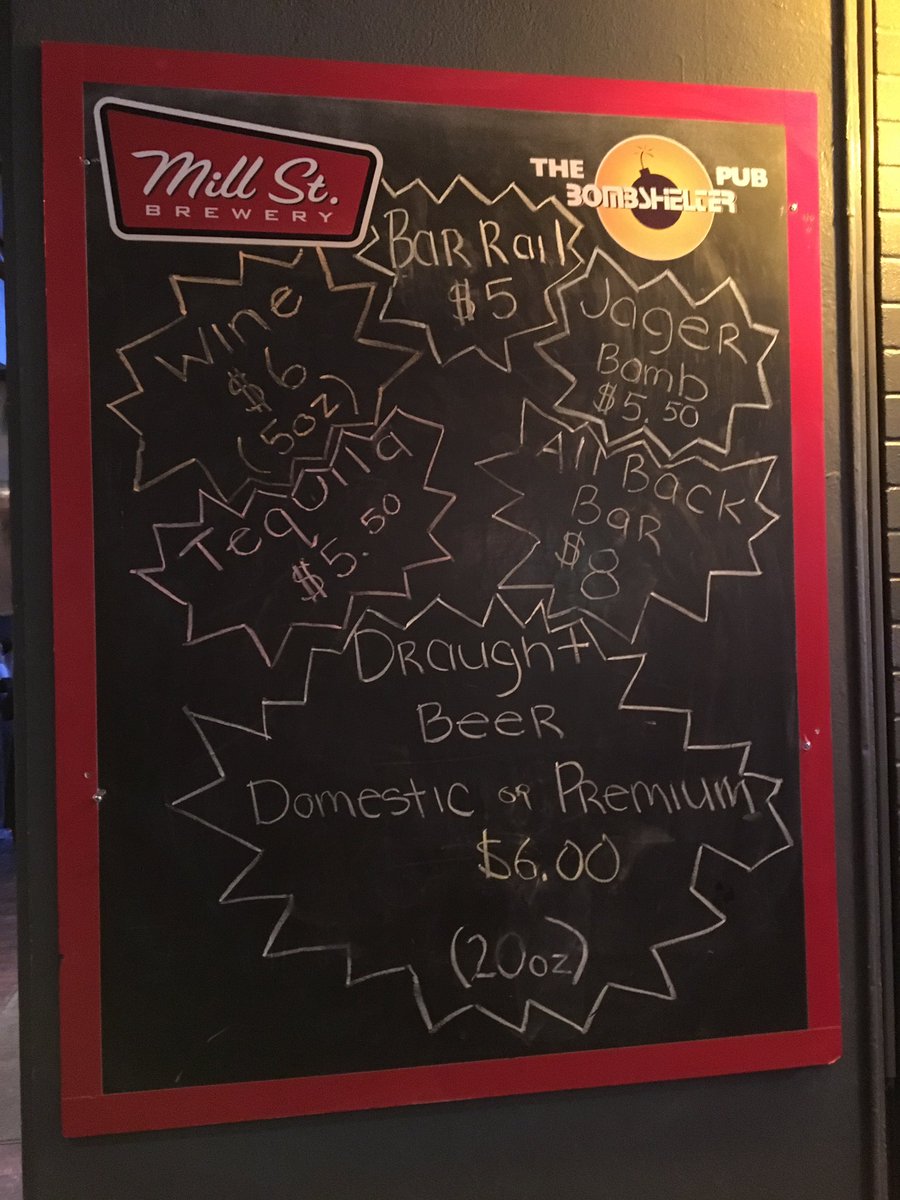 Mill St.
BREWERY
THE BOMBSHELTER PUB
Bar Rail
$5
Wine
$6
(5oz)
Jager
Bomb
$5.50
Tequila
$5.50
All Back
Bar
$8
Draught
Beer
Domestic or Premium
$6.00
(20oz)